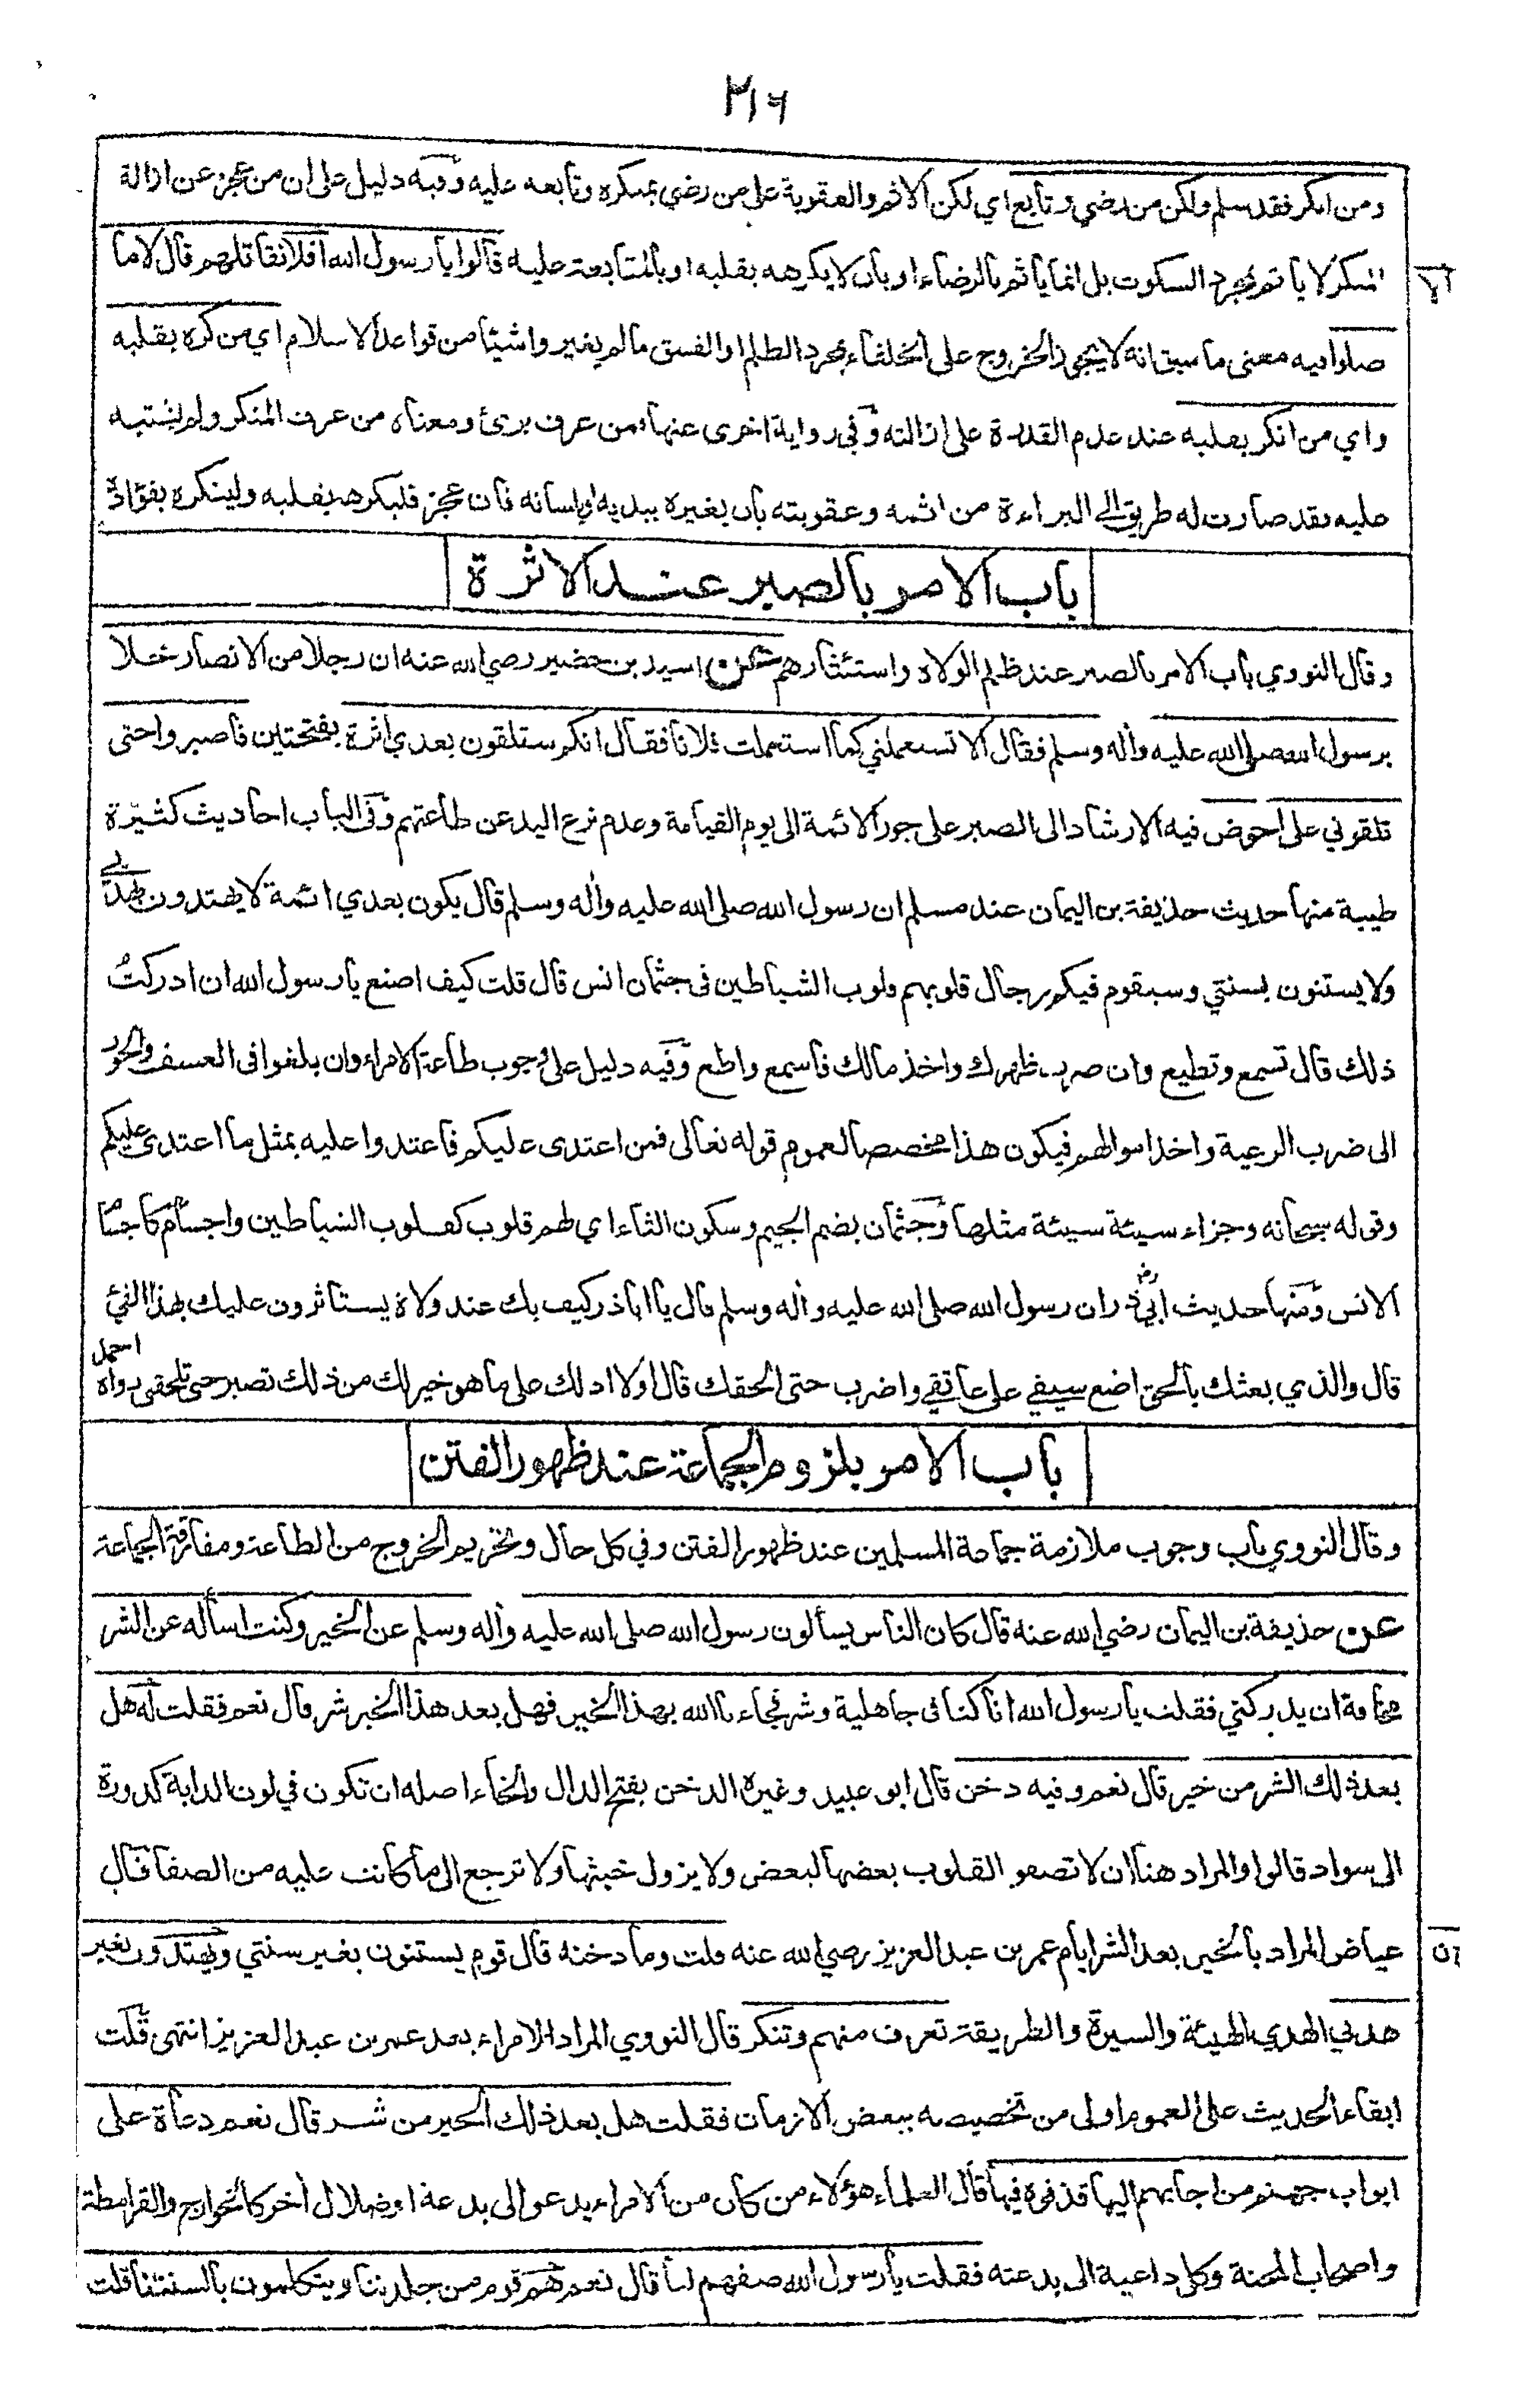 ٣١٦
ومن انكر فقد سلم ولكن من رضي وتابع اي لكن الاثم والعقوبة على من رضي بمنكره وتابعه عليه وفيه دليل على ان من عجز عن ازالة
المنكر لا يأثم بمجرد السكوت بل انما يأثم بالرضاء او بان لا يكرهه بقلبه او بالمتابعة عليه قالوا يا رسول الله افلا نقاتلهم قال لا ما
صلوا فيه معنى ما سبق انه لا يجوز الخروج على الخلفاء بمجرد الظلم او الفسق ما لم يغيروا شيئا من قواعد الاسلام اي من كره بقلبه
واي من انكر بقلبه عند عدم القدرة على ازالته وفي رواية اخرى عنها فمن عرف برئ ومعناه من عرف المنكر ولم يشتبه
عليه فقد صارت له طريق الى البراءة من اثمه وعقوبته بان يغيره بيديه او بلسانه فان عجز فليكرهه بقلبه ولينكره بفؤاده
باب الامر بالصبر عند الاثرة
وقال النووي باب الامر بالصبر عند ظلم الولاة واستئثارهم عن اسيد بن حضير رضي الله عنه ان رجلا من الانصار خلا
برسول الله صلى الله عليه وأله وسلم فقال الا تستعملني كما استعملت فلانا فقال انكم ستلقون بعدي اثرة بفتحتين فاصبروا حتى
تلقوني على الحوض فيه الارشاد الى الصبر على جور الائمة الى يوم القيامة وعدم نزع اليد عن طاعتهم وفي الباب احاديث كثيرة
طيبة منها حديث حذيفة بن اليمان عند مسلم ان رسول الله صلى الله عليه وأله وسلم قال يكون بعدي ائمة لا يهتدون بهديي
ولا يستنون بسنتي وسيقوم فيكم رجال قلوبهم قلوب الشياطين في جثمان انس قال قلت كيف اصنع يا رسول الله ان ادركتُ
ذلك قال تسمع وتطيع وان ضرب ظهرك واخذ مالك فاسمع واطع وفيه دليل على وجوب طاعة الامراء وان بلغوا في العسف والجور
الى ضرب الرعية واخذ اموالهم فيكون هذا مخصصا لعموم قوله تعالى فمن اعتدى عليكم فاعتدوا عليه بمثل ما اعتدى عليكم
وقوله سبحانه وجزاء سيئة سيئة مثلها وجثمان بضم الجيم وسكون الثاء اي لهم قلوب كقلوب الشياطين واجسام كاجسام
الانس ومنها حديث ابي ذر رض ان رسول الله صلى الله عليه وأله وسلم قال يا اباذر كيف بك عند ولاة يستأثرون عليك بهذا الفئ
قال والذي بعثك بالحق اضع سيفي على عاتقي واضرب حتى الحقك قال اولا ادلك على ما هو خير لك من ذلك تصبر حتى تلحقني رواه احمد
باب الامر بلزوم الجماعة عند ظهور الفتن
وقال النووي باب وجوب ملازمة جماعة المسلمين عند ظهور الفتن وفي كل حال وتحريم الخروج من الطاعة ومفارقة الجماعة
عن حذيفة بن اليمان رضي الله عنه قال كان الناس يسألون رسول الله صلى الله عليه وأله وسلم عن الخير وكنت اسأله عن الشر
مخافة ان يدركني فقلت يا رسول الله انا كنا في جاهلية وشر فجاءنا الله بهذا الخير فهل بعد هذا الخير شر قال نعم فقلت له هل
بعد ذلك الشر من خير قال نعم وفيه دخن قال ابو عبيد وغيره الدخن بفتح الدال والخاء اصله ان تكون في لون الدابة كدورة
الى سواد قالوا والمراد هنا ان لا تصفو القلوب بعضها لبعض ولا يزول خبثها ولا ترجع الى ما كانت عليه من الصفا قال
عياض المراد بالخير بعد الشر ايام عمر بن عبد العزيز رضي الله عنه قلت وما دخنه قال قوم يستنون بغير سنتي ويهتدون بغير
هديي الهدي الهيئة والسيرة والطريقة تعرف منهم وتنكر قال النووي المراد الامراء بعد عمر بن عبد العزيز انتهى قلت
ابقاء الحديث على العموم اولى من تخصيصه ببعض الازمان فقلت هل بعد ذلك الخير من شر قال نعم دعاة على
ابواب جهنم من اجابهم اليها قذفوه فيها قال العلماء هؤلاء من كان من الامراء يدعو الى بدعة او ضلال أخر كالخوارج والقرامطة
واصحاب المحنة وكل داعية الى بدعته فقلت يا رسول الله صفهم لنا قال نعم هم قوم من جلدتنا ويتكلمون بالسنتنا قلت